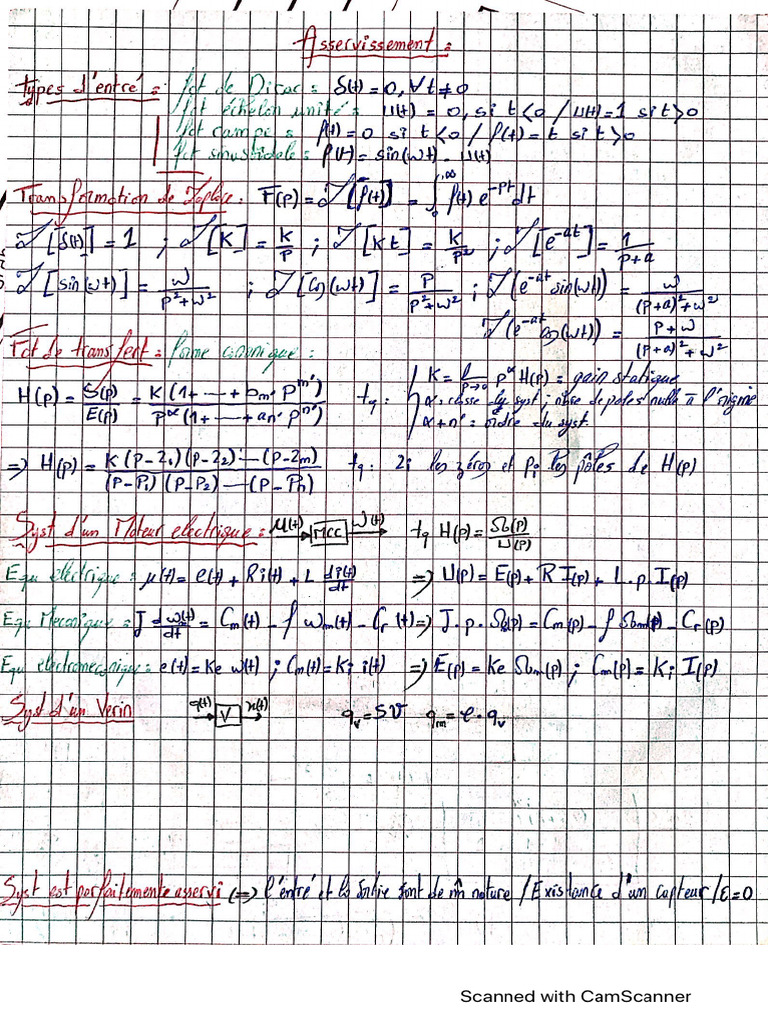 Asservissement :
types d'entré : fct de Dirac : δ(t) = 0, ∀ t ≠ 0
fct échelon unité : u(t) = 0, si t < 0 / u(t) = 1 si t > 0
fct rampe : f(t) = 0 si t < 0 / f(t) = t si t > 0
fct sinusoidale : f(t) = sin(wt) . u(t)
Transformation de Laplace : F(p) = ℒ[f(t)] = ∫₀^+∞ f(t) e^-pt dt
ℒ[δ(t)] = 1 ; ℒ[K] = K/p ; ℒ[Kt] = K/p² ; ℒ[e^-at] = 1/(p+a)
ℒ[sin(wt)] = w/(p²+w²) ; ℒ[Cos(wt)] = p/(p²+w²) ; ℒ(e^-at sin(wt)) = w/((p+a)²+w²)
ℒ(e^-at cos(wt)) = (p+w)/((p+a)²+w²)
Fct de transfert : forme canonique :
H(p) = S(p)/E(p) = K(1+---+bm'.p^m')/(p^α(1+---+an'.p^n')) tq : K = lim p→0 p^α H(p) = gain statique
α : classe du syst ; nbre de poles nulle à l'origine
α+n' : ordre du syst.
=> H(p) = K(p-z1)(p-z2)---(p-zm)/((p-p1)(p-p2)---(p-pn)) tq : zi les zéros et pi les pôles de H(p)
Syst d'un Moteur electrique : u(t) → MCC → w(t) tq H(p) = Ω(p)/U(p)
Equ électrique : u(t) = e(t) + Ri(t) + L di(t)/dt => U(p) = E(p) + R I(p) + L.p.I(p)
Equ Mecanique : J dw(t)/dt = Cm(t) - f wm(t) - Cr(t) => J.p.Ω(p) = Cm(p) - f Ωm(p) - Cr(p)
Equ electromecanique : e(t) = Ke w(t) ; Cm(t) = Ki i(t) => E(p) = Ke Ωm(p) ; Cm(p) = Ki I(p)
Syst d'un Verin q(t) → V → x(t) qv = SV qm = ρ . qv
Syst est parfaitemente asservi <=> l'entré et la sortie sont de m̂ nature / Existance d'un capteur / ε = 0
Scanned with CamScanner